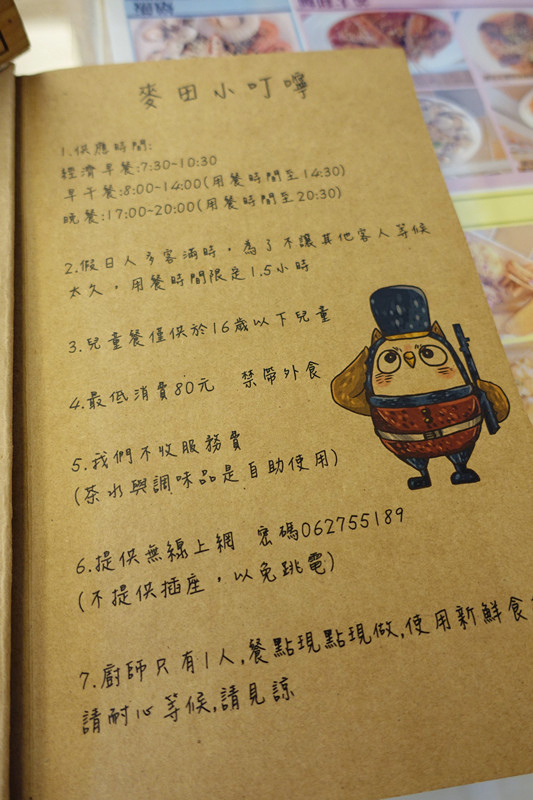 麥田小叮嚀
1.供應時間:
經濟早餐:7:30~10:30
早午餐:8:00~14:00(用餐時間至14:30)
晚餐:17:00~20:00(用餐時間至20:30)
2.假日人多客滿時，為了不讓其他客人等候
太久，用餐時間限定1.5小時
3.兒童餐僅供於16歲以下兒童
4.最低消費80元 禁帶外食
5.我們不收服務費
(茶水與調味品是自助使用)
6.提供無線上網 密碼062755189
(不提供插座，以免跳電)
7.廚師只有1人,餐點現點現做,使用新鮮食
請耐心等候,請見諒